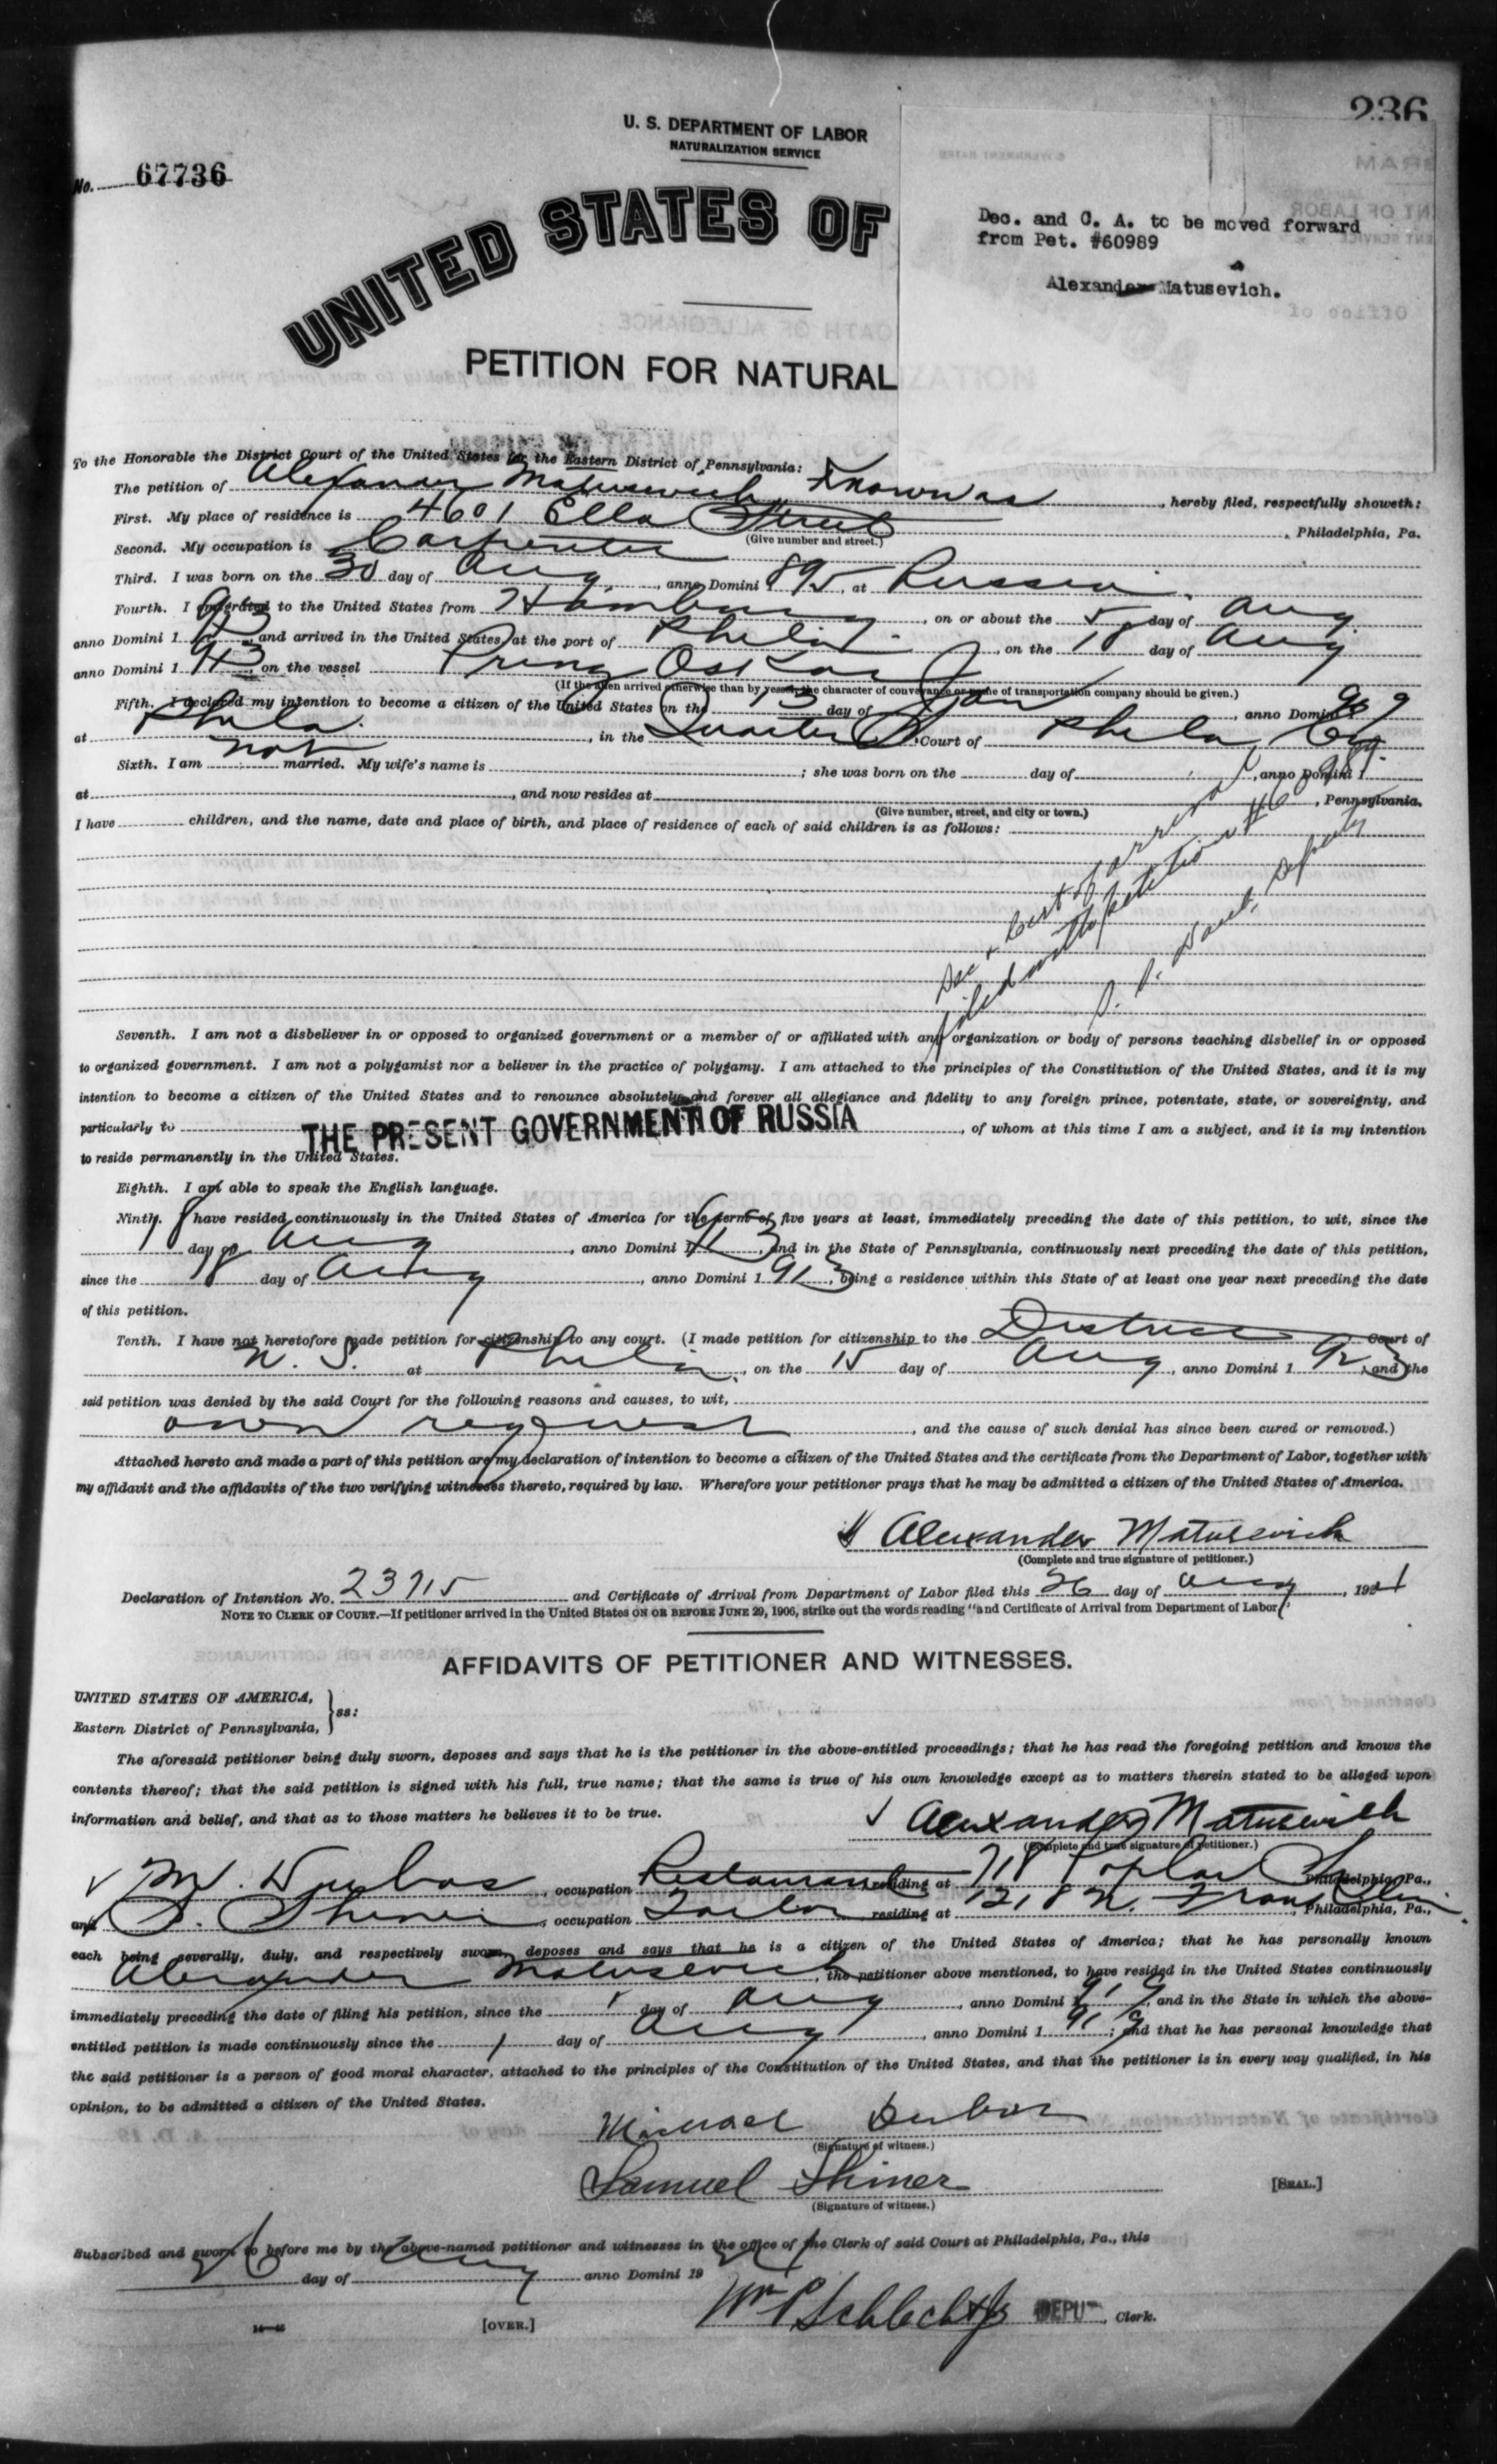 236
U. S. DEPARTMENT OF LABOR
NATURALIZATION SERVICE
No. 67736
UNITED STATES OF
Dec. and C. A. to be moved forward
from Pet. #60989
Alexander Matusevich.
PETITION FOR NATURAL
To the Honorable the District Court of the United States for the Eastern District of Pennsylvania:
The petition of Alexander Matusevich, Known as , hereby filed, respectfully showeth:
First. My place of residence is 4601 Ella Street , Philadelphia, Pa.
(Give number and street.)
Second. My occupation is Carpenter
Third. I was born on the 30 day of Aug , anno Domini 1895, at Russia.
Fourth. I emigrated to the United States from Hamburg , on or about the 5 day of Aug.
anno Domini 1913 and arrived in the United States, at the port of Phila. , on the 18 day of Aug
anno Domini 1913 on the vessel Prinz Oskar
(If the alien arrived otherwise than by vessel, the character of conveyance or name of transportation company should be given.)
Fifth. I declared my intention to become a citizen of the United States on the 13 day of Jan , anno Domini
at Phila. , in the Quarter S. Court of Phila. Co.
Sixth. I am not married. My wife's name is ; she was born on the day of , anno Domini 1
at , and now resides at , Pennsylvania.
(Give number, street, and city or town.)
I have children, and the name, date and place of birth, and place of residence of each of said children is as follows:
Dec + Cert of arrival
filed with petition #60989.
Deputy
Seventh. I am not a disbeliever in or opposed to organized government or a member of or affiliated with any organization or body of persons teaching disbelief in or opposed
to organized government. I am not a polygamist nor a believer in the practice of polygamy. I am attached to the principles of the Constitution of the United States, and it is my
intention to become a citizen of the United States and to renounce absolutely and forever all allegiance and fidelity to any foreign prince, potentate, state, or sovereignty, and
particularly to THE PRESENT GOVERNMENT OF RUSSIA , of whom at this time I am a subject, and it is my intention
to reside permanently in the United States.
Eighth. I am able to speak the English language.
Ninth. I have resided continuously in the United States of America for the term of five years at least, immediately preceding the date of this petition, to wit, since the
18 day of Aug , anno Domini 1913, and in the State of Pennsylvania, continuously next preceding the date of this petition,
since the 18 day of Aug , anno Domini 1913, being a residence within this State of at least one year next preceding the date
of this petition.
Tenth. I have not heretofore made petition for citizenship to any court. (I made petition for citizenship to the District Court of
U. S. at Phila , on the 15 day of Aug , anno Domini 1923, and the
said petition was denied by the said Court for the following reasons and causes, to wit,
own request , and the cause of such denial has since been cured or removed.)
Attached hereto and made a part of this petition are my declaration of intention to become a citizen of the United States and the certificate from the Department of Labor, together with
my affidavit and the affidavits of the two verifying witnesses thereto, required by law. Wherefore your petitioner prays that he may be admitted a citizen of the United States of America.
Alexander Matusevich
(Complete and true signature of petitioner.)
Declaration of Intention No. 23715 and Certificate of Arrival from Department of Labor filed this 26 day of Aug , 192
NOTE TO CLERK OF COURT.—If petitioner arrived in the United States ON OR BEFORE JUNE 29, 1906, strike out the words reading "and Certificate of Arrival from Department of Labor."
AFFIDAVITS OF PETITIONER AND WITNESSES.
UNITED STATES OF AMERICA,
Eastern District of Pennsylvania, } ss:
The aforesaid petitioner being duly sworn, deposes and says that he is the petitioner in the above-entitled proceedings; that he has read the foregoing petition and knows the
contents thereof; that the said petition is signed with his full, true name; that the same is true of his own knowledge except as to matters therein stated to be alleged upon
information and belief, and that as to those matters he believes it to be true.
Alexander Matusevich
(Complete and true signature of petitioner.)
M. Dubas , occupation Restaurant residing at 718 Poplar St Philadelphia, Pa.,
and S. Shiner , occupation Tailor residing at 1218 N. Franklin , Philadelphia, Pa.,
each being severally, duly, and respectively sworn, deposes and says that he is a citizen of the United States of America; that he has personally known
Alexander Matusevich , the petitioner above mentioned, to have resided in the United States continuously
immediately preceding the date of filing his petition, since the 1 day of Aug , anno Domini 1919, and in the State in which the above-
entitled petition is made continuously since the 1 day of Aug , anno Domini 1919; and that he has personal knowledge that
the said petitioner is a person of good moral character, attached to the principles of the Constitution of the United States, and that the petitioner is in every way qualified, in his
opinion, to be admitted a citizen of the United States.
Michael Dubas
(Signature of witness.)
Samuel Shiner
(Signature of witness.)
[SEAL.]
Subscribed and sworn to before me by the above-named petitioner and witnesses in the office of the Clerk of said Court at Philadelphia, Pa., this
26 day of Aug anno Domini 19
Wm P Schlecht Jr DEPUTY , Clerk.
[OVER.]